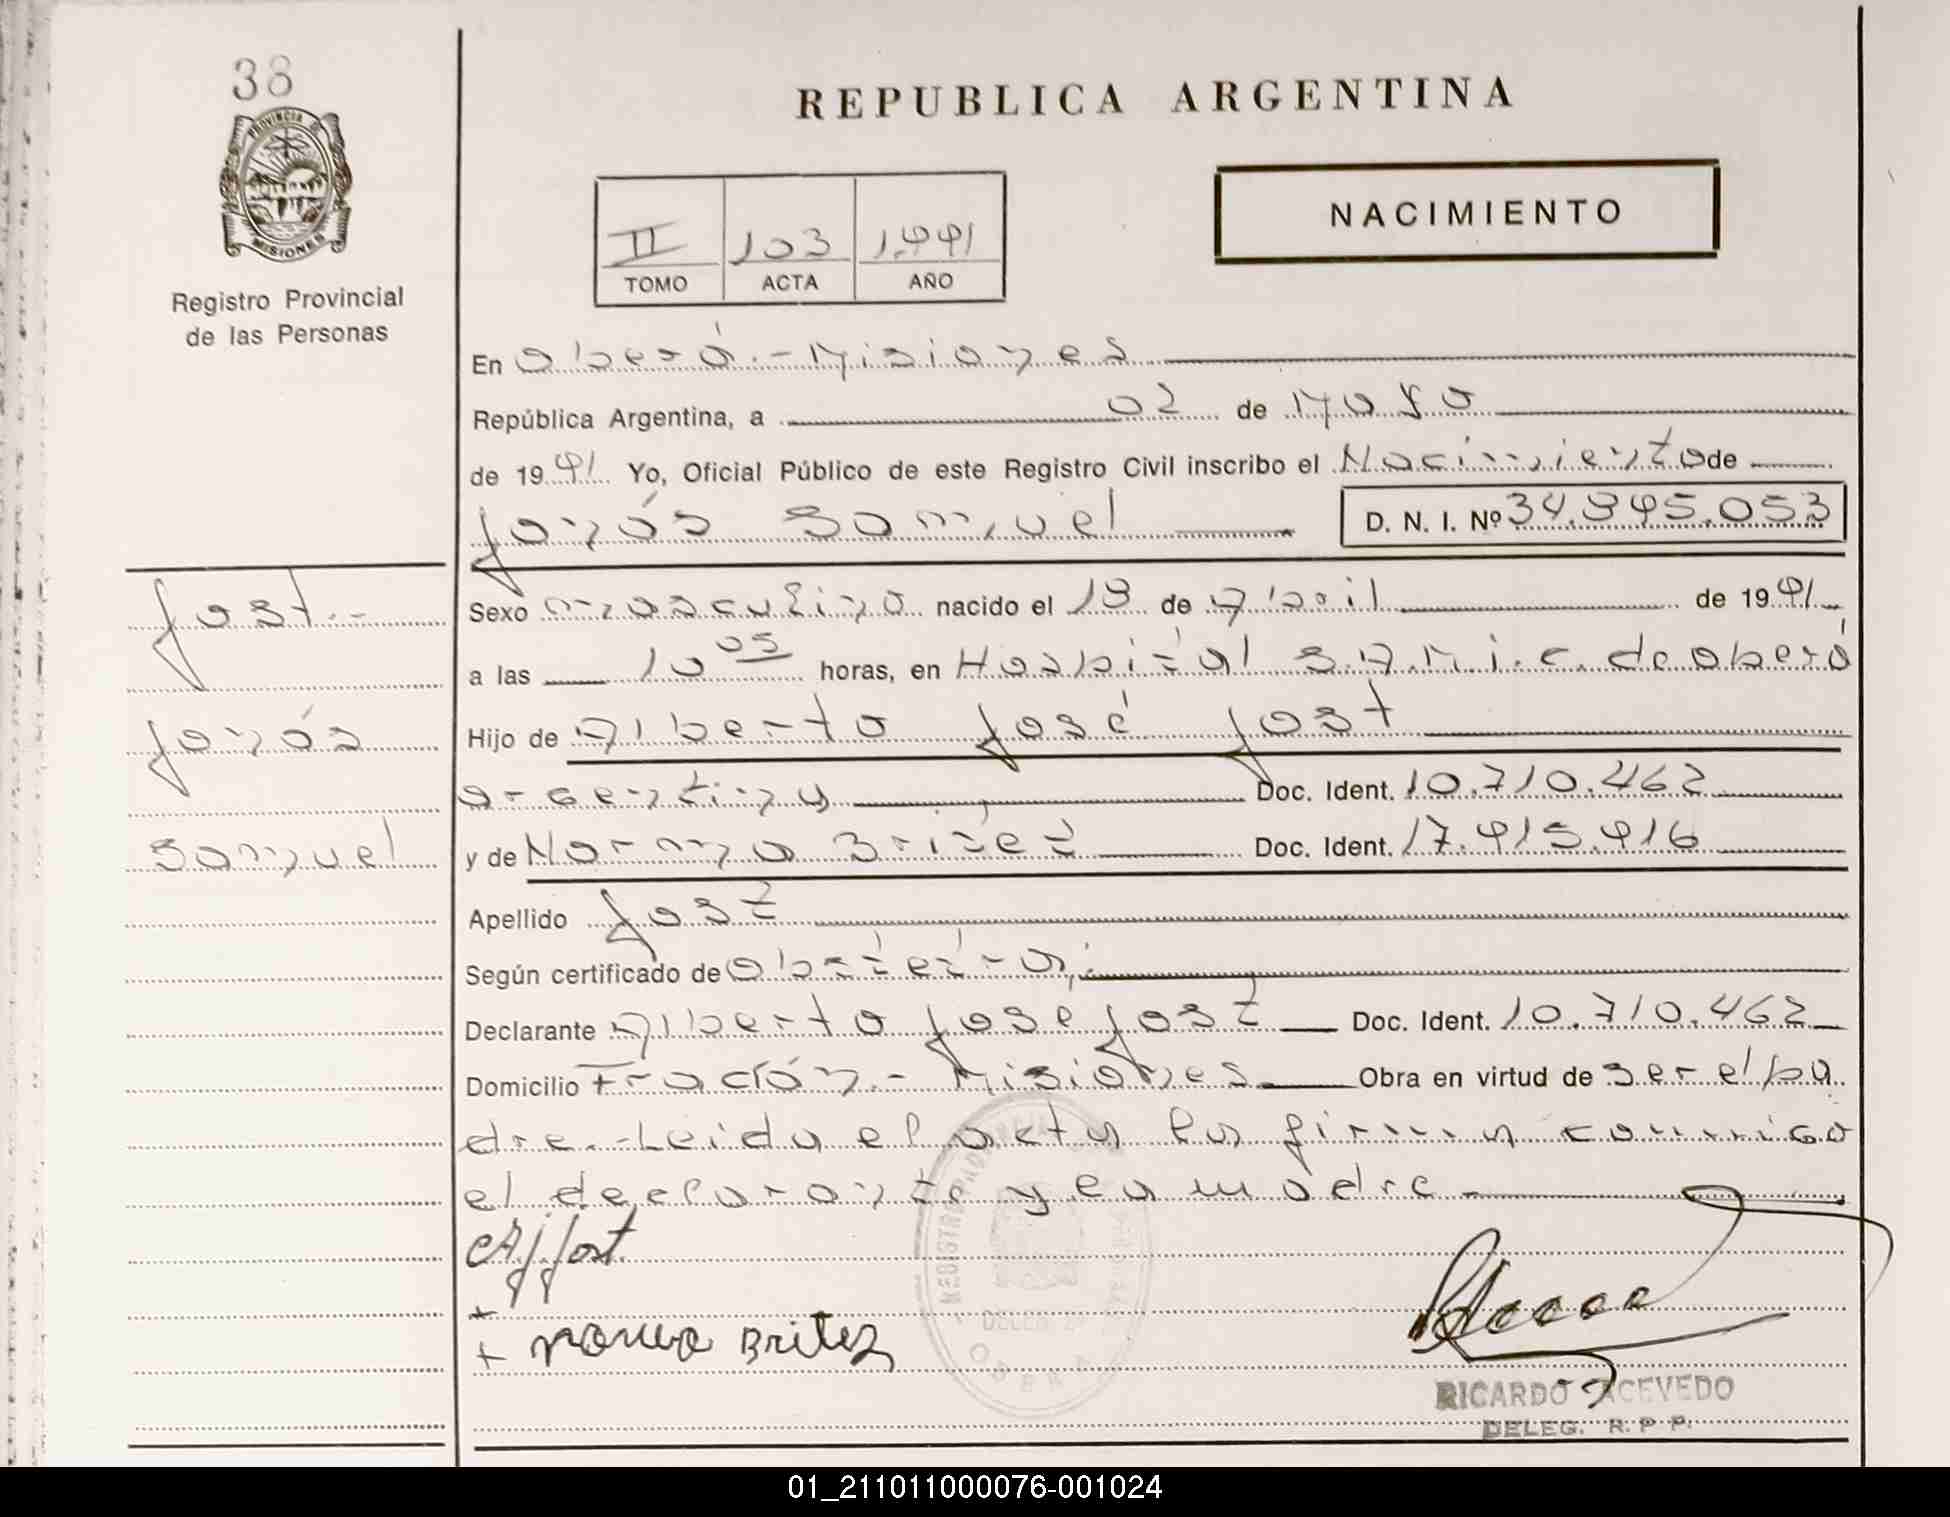 38
PROVINCIA DE
MISIONES
Registro Provincial
de las Personas
REPUBLICA ARGENTINA
NACIMIENTO
II 103 1.991
TOMO ACTA AÑO
En Oberá.-Misiones
República Argentina, a 02 de Mayo
de 1991 Yo, Oficial Público de este Registro Civil inscribo el Nacimiento de
Jonás Samuel D. N. I. Nº 34.395.053
Jost.-
Jonás
Samuel
Sexo masculino nacido el 18 de Abril de 1991
a las 10 05 horas, en Hospital S.A.M.i.c. de Oberá
Hijo de Alberto José Jost
argentino Doc. Ident. 10.710.462
y de Norma Britez Doc. Ident. 17.915.916
Apellido Jost
Según certificado de Obstétra,
Declarante Alberto José Jost Doc. Ident. 10.710.462
Domicilio Fración.- Misiones Obra en virtud de ser el pa
dre.-Leida el acta la firman conmigo
el declarante y la madre.-
AJJost.
+
+ Norma Britez
RICARDO ACEVEDO
DELEG. R. P. P.
01_211011000076-001024